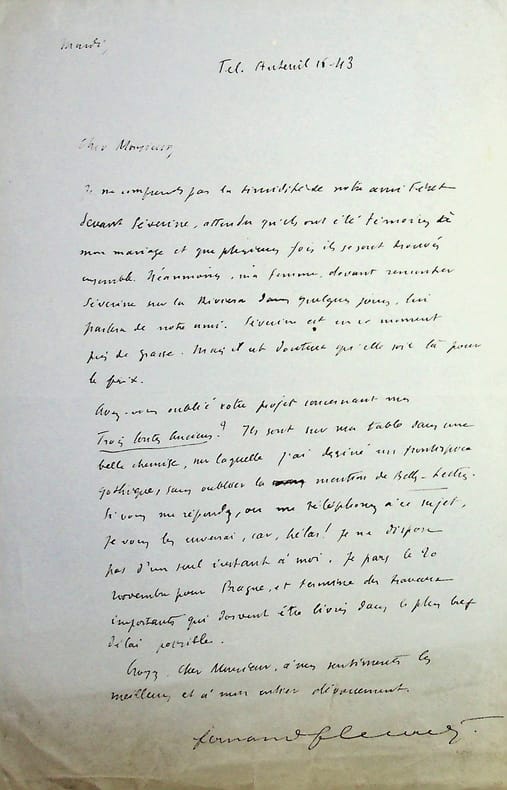 Mardi,
Tel. Auteuil 16-43
Cher Monsieur,
Je ne comprends pas la timidité de notre ami Féret
devant Séverine, attendu qu'ils ont été témoins de
mon mariage et que plusieurs fois ils se sont trouvés
ensemble. Néanmoins, ma femme, devant rencontrer
Séverine sur la Riviera dans quelques jours, lui
parlera de notre ami. Séverine est en ce moment
près de Grasse. Mais il est douteux qu'elle soit là pour
le prix.
Avez-vous oublié votre projet concernant mes
Trois Contes Anciens? Ils sont sur ma table dans une
belle chemise, sur laquelle j'ai dessiné un frontispice
gothique, sans oublier la mention de Belles-Lettres.
Si vous me répondez, ou me téléphonez à ce sujet,
je vous les enverrai, car, hélas! je ne dispose
pas d'un seul instant à moi. Je pars le 20
novembre pour Prague, et termine des travaux
importants qui doivent être livrés dans le plus bref
délai possible.
Croyez, cher Monsieur, à mes sentiments les
meilleurs et à mon entier dévouement.
Fernand Fleuret.